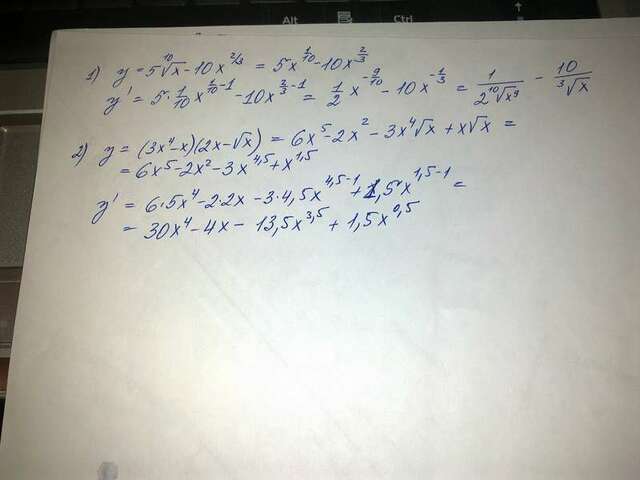 Alt
Ctrl
1) y = 5¹⁰√x - 10x^{2/3} = 5x^{1/10} - 10x^{2/3}
y' = 5·1/10 x^{1/10 - 1} - 10x^{2/3 - 1} = 1/2 x^{-9/10} - 10x^{-1/3} = 1/(2¹⁰√x⁹) - 10/(³√x)
2) y = (3x⁴-x)(2x-√x) = 6x⁵-2x² - 3x⁴√x + x√x =
= 6x⁵-2x²-3x^{4,5}+x^{1,5}
y' = 6·5x⁴-2·2x-3·4,5x^{4,5-1}+1,5x^{1,5-1} =
= 30x⁴-4x-13,5x^{3,5}+1,5x^{0,5}